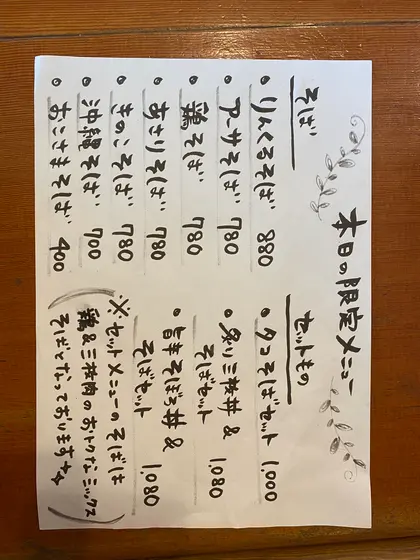 本日の限定メニュー
そば
• りんくるそば 880
• アーサそば 780
• 鶏そば 780
• あさりそば 780
• きのこそば 780
• 沖縄そば 700
• おこさまそば 400
セットもの
• タコそばセット 1,000
• 炙り三枚丼&
そばセット 1,080
• 旨辛そぼろ丼&
そばセット 1,080
(※セットメニューのそばは
鶏&三枚肉のおトクなミックス
そばとなっております☆☆)